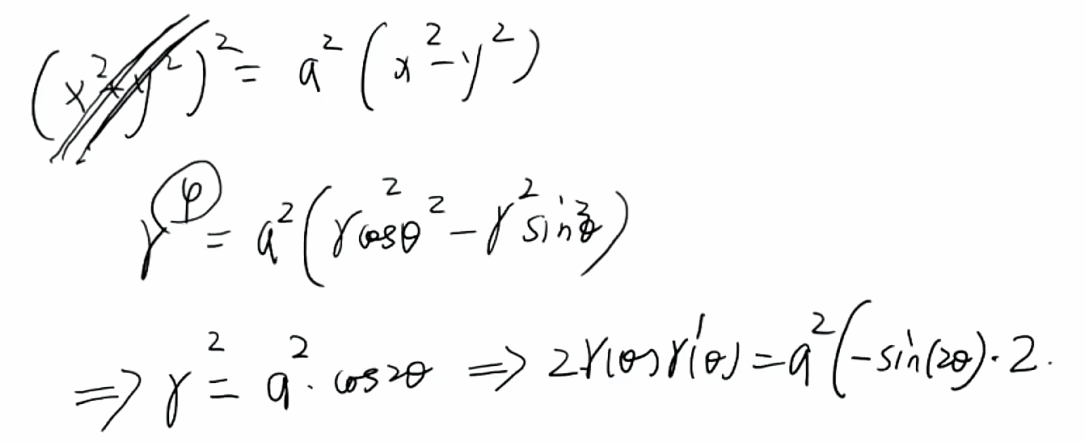 (x²+y²)² = a²(x²-y²)
r⁴ = a²(r²cosθ² - r²sin²θ)
⇒ r² = a²·cos2θ ⇒ 2r(θ)r'(θ) = a²(-sin(2θ)·2.